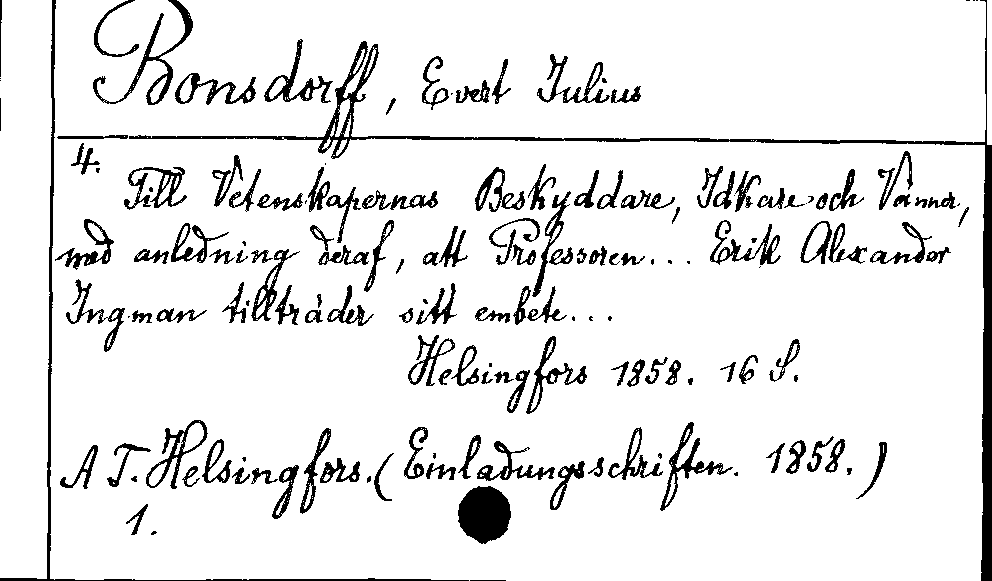 Bonsdorff, Evert Julius
4.
Till Vetenskapernas Beskyddare, Idkare och Vänner,
med anledning deraf, att Professoren... Erik Alexander
Ingman tillträder sitt embete...
Helsingfors 1858. 16 S.
A T. Helsingfors. (Einladungsschriften. 1858.)
1.